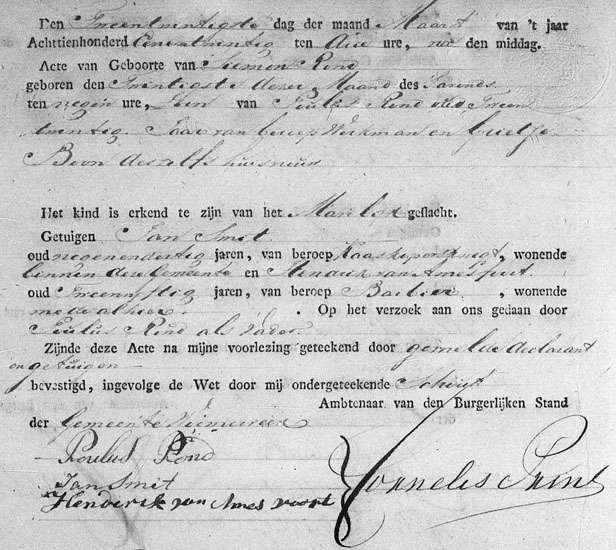 Den Tweentwintigste dag der maand Maart van 't jaar
Achttienhonderd Eenentwintig ten drie ure, na den middag.
Acte van Geboorte van Siemen Rond
geboren den Twintigste dezer Maand des Savonds
ten negen ure, Zoon van Paulus Rond oud Tween
twintig Jaar van beroep Werkman en Grietje
Boon deszelfs huisvrouw
Het kind is erkend te zijn van het Manlyk geslacht.
Getuigen Jan Smit
oud negenendertig jaren, van beroep Kaaskopersknegt, wonende
binnen deze Gemeente en Hendrik van Amesfoort
oud Tweenvyftig jaren, van beroep Barbier, wonende
mede alhier. Op het verzoek aan ons gedaan door
Paulus Rond als Vader.
Zijnde deze Acte na mijne voorlezing geteekend door gemelde declarant
en getuigen
bevestigd, ingevolge de Wet door mij ondergeteekende Schout
Ambtenaar van den Burgerlijken Stand
der Gemeente
Poulus Rond
Jan Smit
Henderik van Ames voort
Cornelis